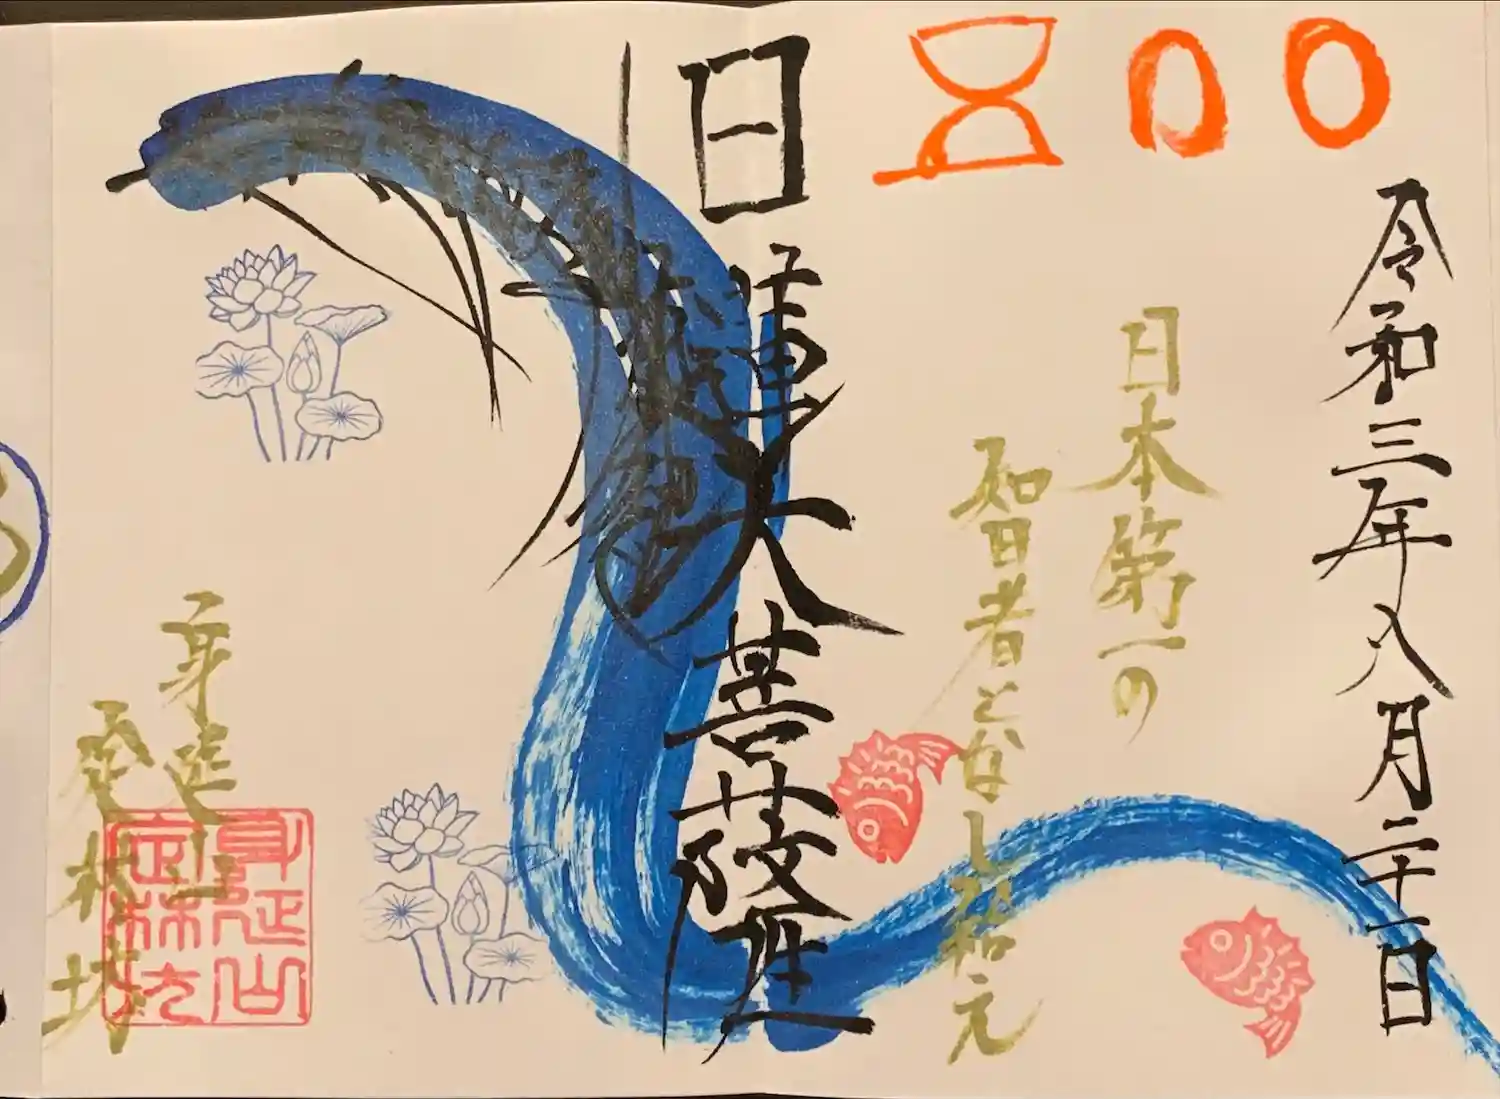 令和三年八月二十一日
日本第一の
智者となし給え
日蓮大菩薩
身延山
定林坊
身延山
定林坊